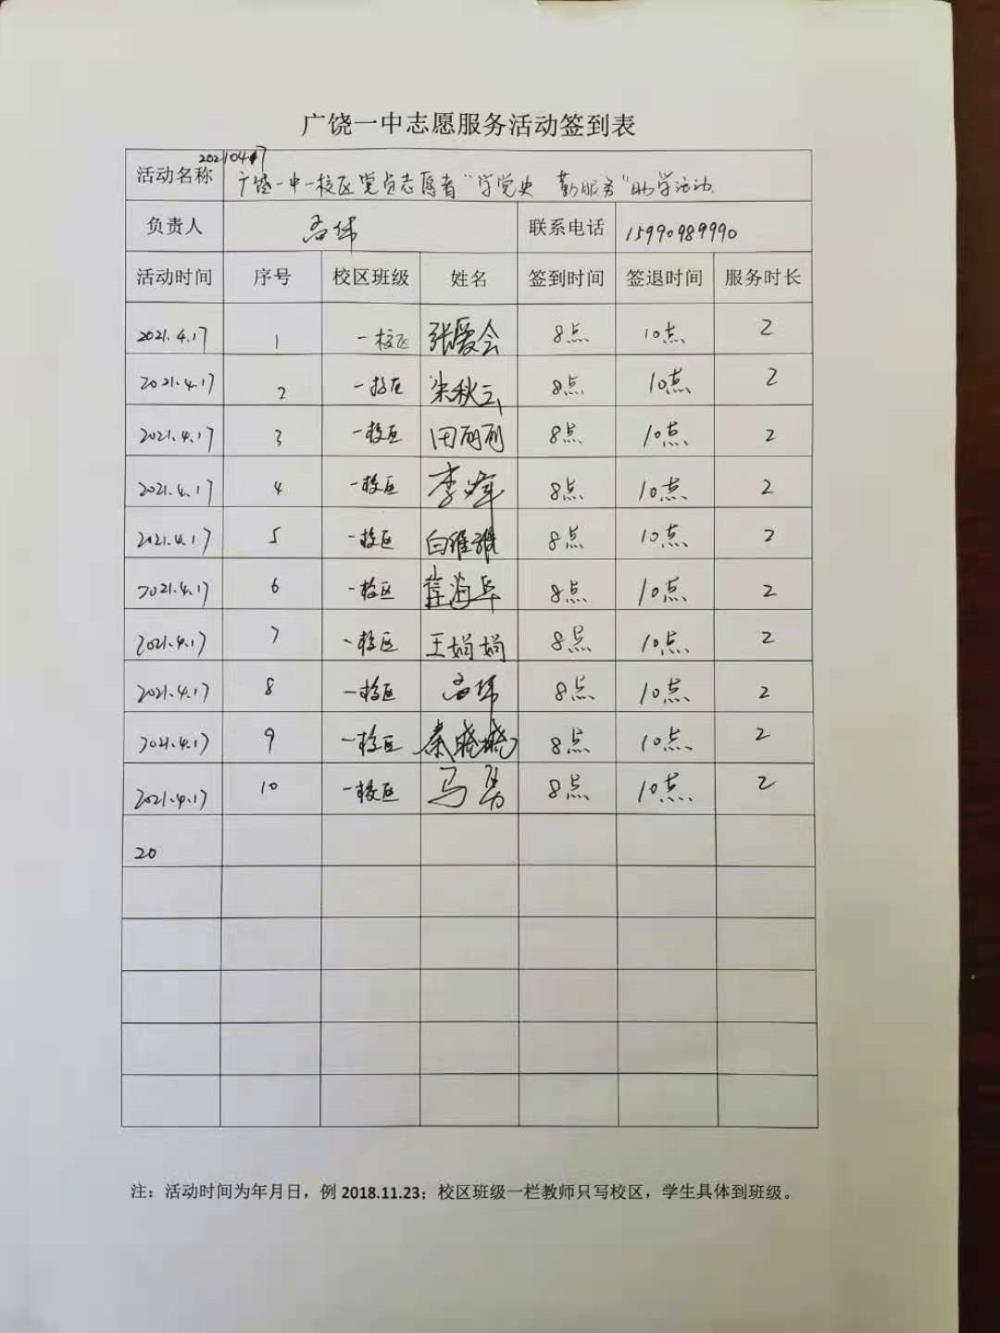 广饶一中志愿服务活动签到表
20210417
活动名称 广饶一中一校区党员志愿者“学党史 勤服务”助学活动
负责人 联系电话 15990989990
活动时间 序号 校区班级 姓名 签到时间 签退时间 服务时长
2021.4.17 1 一校区 张爱会 8点 10点 2
2021.4.17 2 一校区 宋秋云 8点 10点 2
2021.4.17 3 一校区 田丽丽 8点 10点 2
2021.4.17 4 一校区 李峰 8点 10点 2
2021.4.17 5 一校区 白雅雅 8点 10点 2
2021.4.17 6 一校区 薛海华 8点 10点 2
2021.4.17 7 一校区 王娟娟 8点 10点 2
2021.4.17 8 一校区 8点 10点 2
2021.4.17 9 一校区 秦晓晓 8点 10点 2
2021.4.17 10 一校区 马勇 8点 10点 2
20
注：活动时间为年月日，例 2018.11.23；校区班级一栏教师只写校区，学生具体到班级。